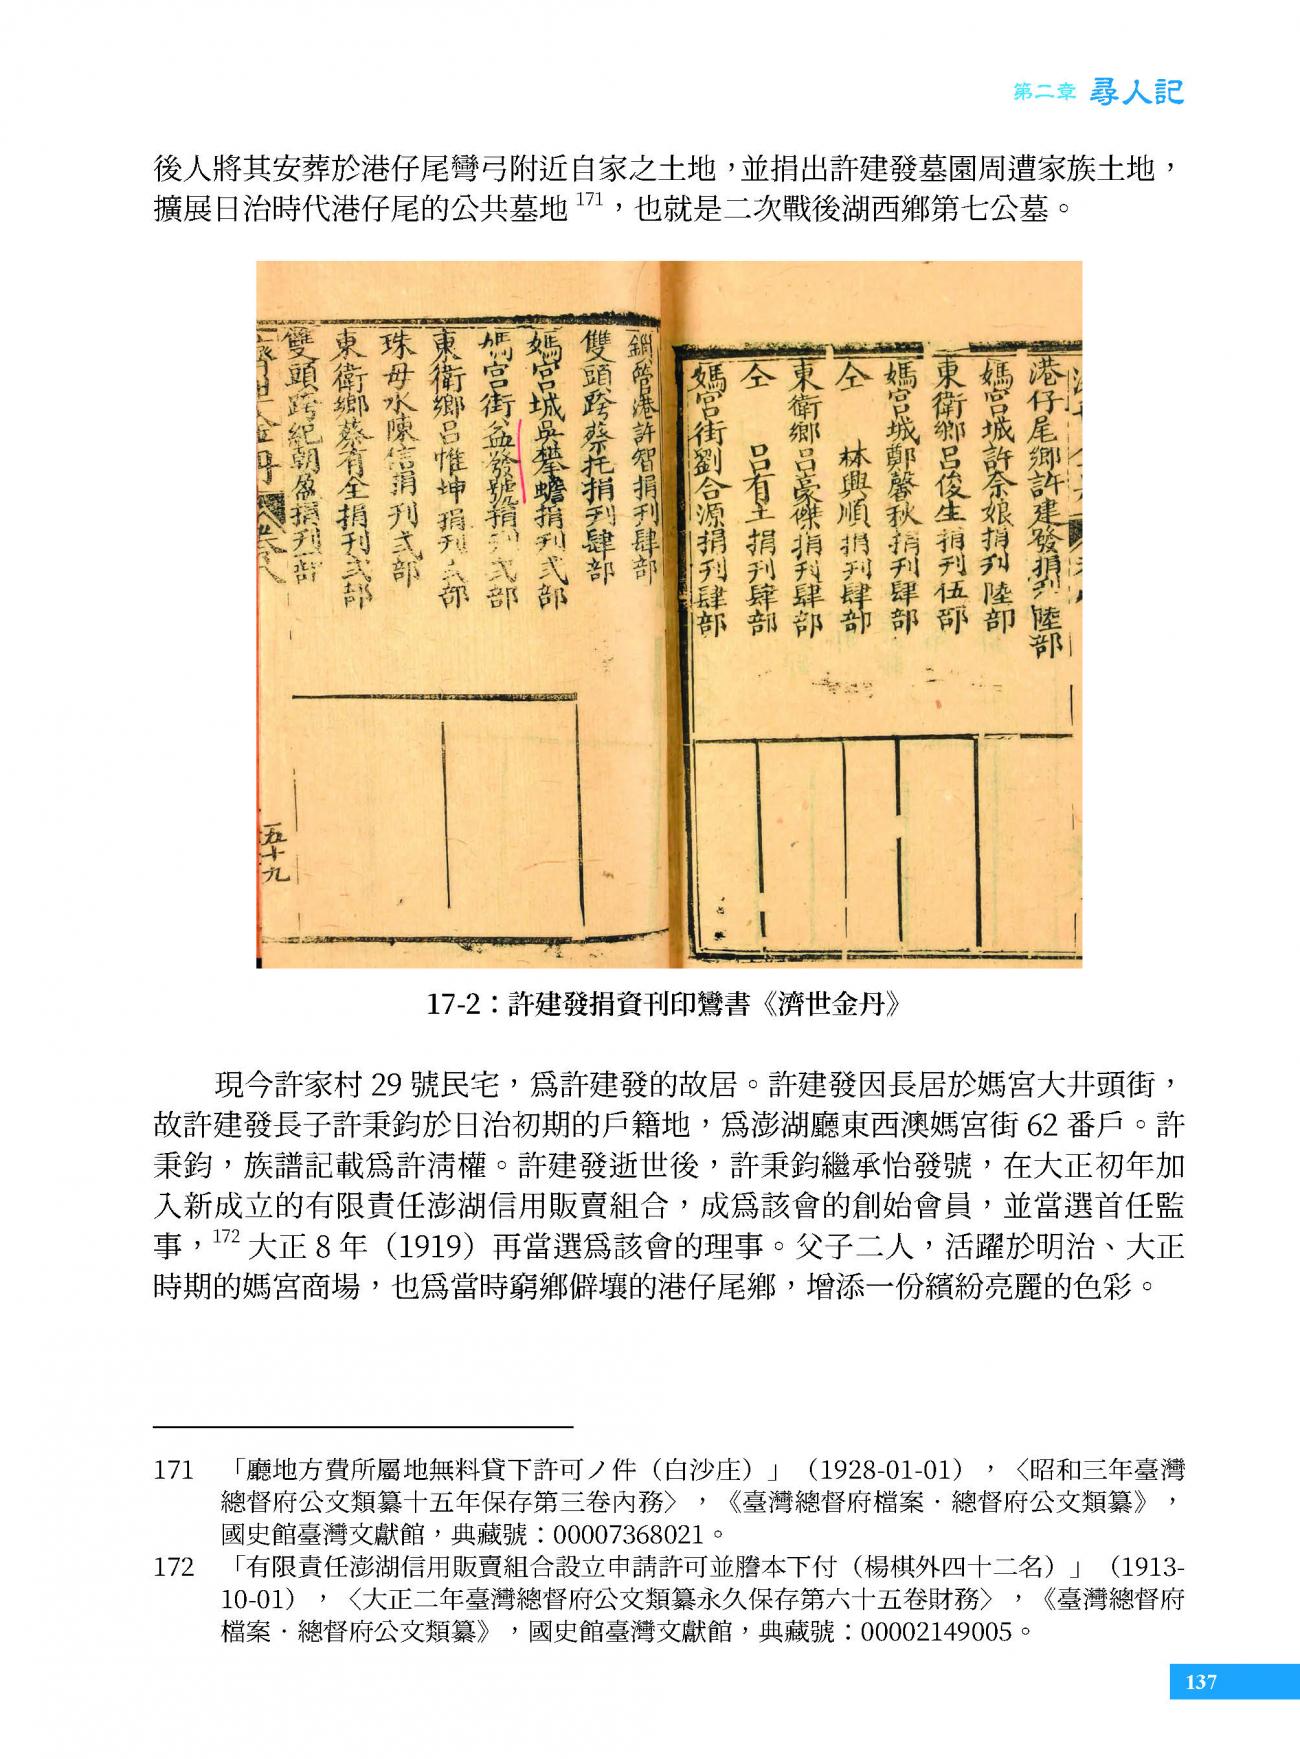 第二章 尋人記
後人將其安葬於港仔尾彎弓附近自家之土地，並捐出許建發墓園周遭家族土地，
擴展日治時代港仔尾的公共墓地171，也就是二次戰後湖西鄉第七公墓。
港仔尾鄉許建發捐刊陸部
媽宮城許奈娘捐刊陸部
東衛鄉呂俊生捐刊伍部
媽宮城鄭馨秋捐刊肆部
仝 林興順捐刊肆部
東衛鄉呂豪傑捐刊肆部
仝 呂有土捐刊肆部
媽宮街劉合源捐刊肆部
鎖管港許智捐刊肆部
雙頭跨蔡托捐刊肆部
媽宮城吳攀蟾捐刊弍部
媽宮街益發號捐刊弍部
東衛鄉呂惟坤捐刊弍部
珠母水陳信捐刊弍部
東衛鄉蔡有全捐刊弍部
雙頭跨紀朝盈捐刊
五十九
17-2：許建發捐資刊印鸞書《濟世金丹》
現今許家村 29 號民宅，為許建發的故居。許建發因長居於媽宮大井頭街，
故許建發長子許秉鈞於日治初期的戶籍地，為澎湖廳東西澳媽宮街 62 番戶。許
秉鈞，族譜記載為許清權。許建發逝世後，許秉鈞繼承怡發號，在大正初年加
入新成立的有限責任澎湖信用販賣組合，成為該會的創始會員，並當選首任監
事，172 大正 8 年（1919）再當選為該會的理事。父子二人，活躍於明治、大正
時期的媽宮商場，也為當時窮鄉僻壤的港仔尾鄉，增添一份繽紛亮麗的色彩。
171 「廳地方費所屬地無料貸下許可ノ件（白沙庄）」（1928-01-01），〈昭和三年臺灣
總督府公文類纂十五年保存第三卷內務〉，《臺灣總督府檔案．總督府公文類纂》，
國史館臺灣文獻館，典藏號：00007368021。
172 「有限責任澎湖信用販賣組合設立申請許可並謄本下付（楊棋外四十二名）」（1913-
10-01），〈大正二年臺灣總督府公文類纂永久保存第六十五卷財務〉，《臺灣總督府
檔案．總督府公文類纂》，國史館臺灣文獻館，典藏號：00002149005。
137